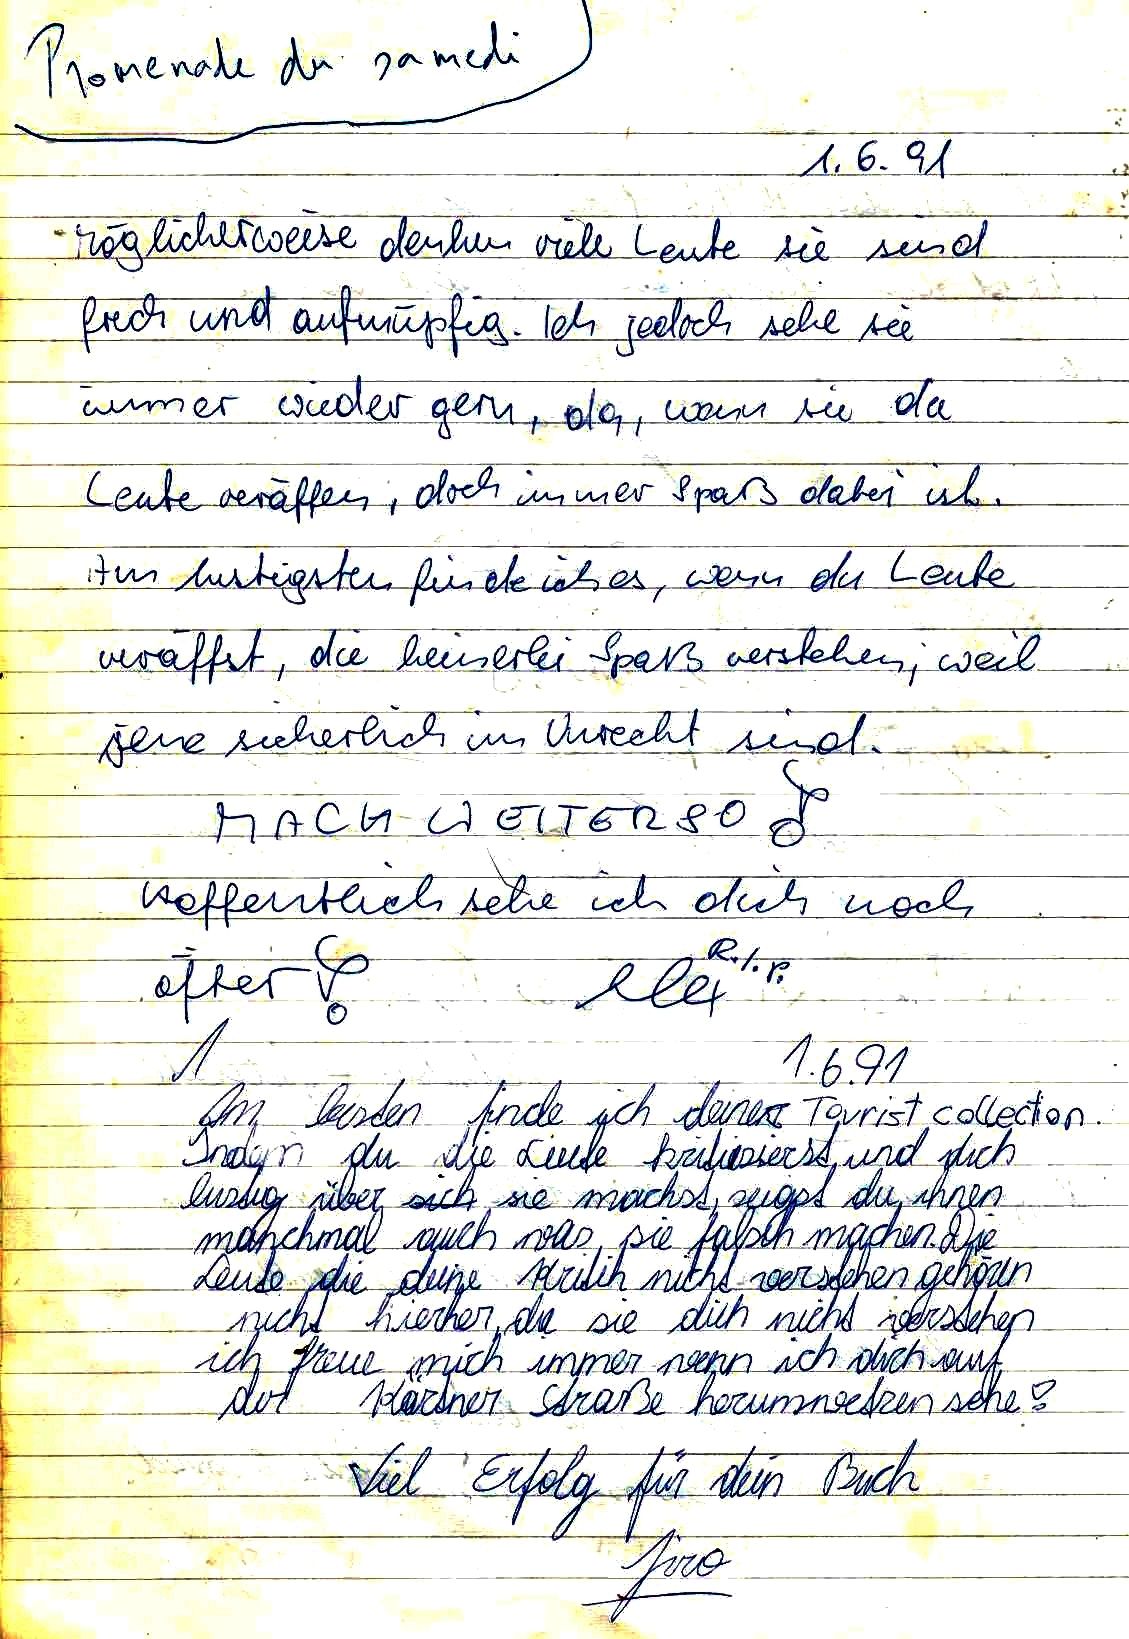 Promenade du samedi
1.6.91
Möglicherweise denken viele Leute sie sind
frech und aufmüpfig. Ich jedoch sehe sie
immer wieder gern, da, wenn sie da
Leute veräffen, doch immer Spaß dabei ist.
Am lustigsten finde ich es, wenn du Leute
veräffst, die keinerlei Spaß verstehen, weil
jene sicherlich im Unrecht sind.
MACH WEITER SO!
Hoffentlich sehe ich dich noch
öfter!
Alex R.I.P.
1.6.91
Am besten finde ich deine Tourist collection.
Indem du die Leute kritisierst und dich
lustig über sich sie machst, zeigst du ihnen
manchmal auch was sie falsch machen. Die
Leute die deine Kritik nicht verstehen gehören
nicht hierher, da sie dich nicht verstehen
ich freue mich immer wenn ich dich auf
der Kärtner Straße herumwetzen sehe!
Viel Erfolg für dein Buch